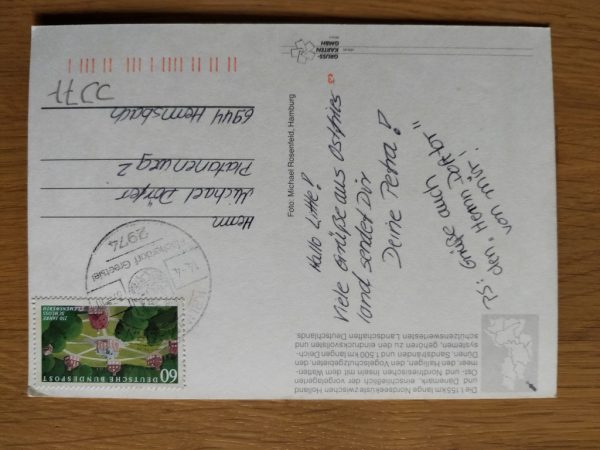 Die 1.555 km lange Nordseeküste zwischen Holland
und Dänemark, einschließlich der vorgelagerten
Ost- und Nordfriesischen Inseln mit dem Watten-
meer, den Halligen, den Vogelschutzgebieten, den
Dünen, Sandbänken und 1500 km langen Deich-
systemen, gehören zu den eindrucksvollsten und
schützenswertesten Landschaften Deutschlands.
Hallo Little!
Viele Grüße aus Ostfries
land sendet Dir
Deine Petra!
PS: Grüße auch
den „Herrn Doktor"
von mir!
Foto: Michael Rosenfeld, Hamburg
GRUSS-
KARTEN
GMBH
60
DEUTSCHE BUNDESPOST
250 JAHRE
SCHLOSS
CLEMENSWERTH
Fischerdorf Greetsiel
2974
Herrn
Michael Dörfer
Platanenweg 2
6944 Hemsbach